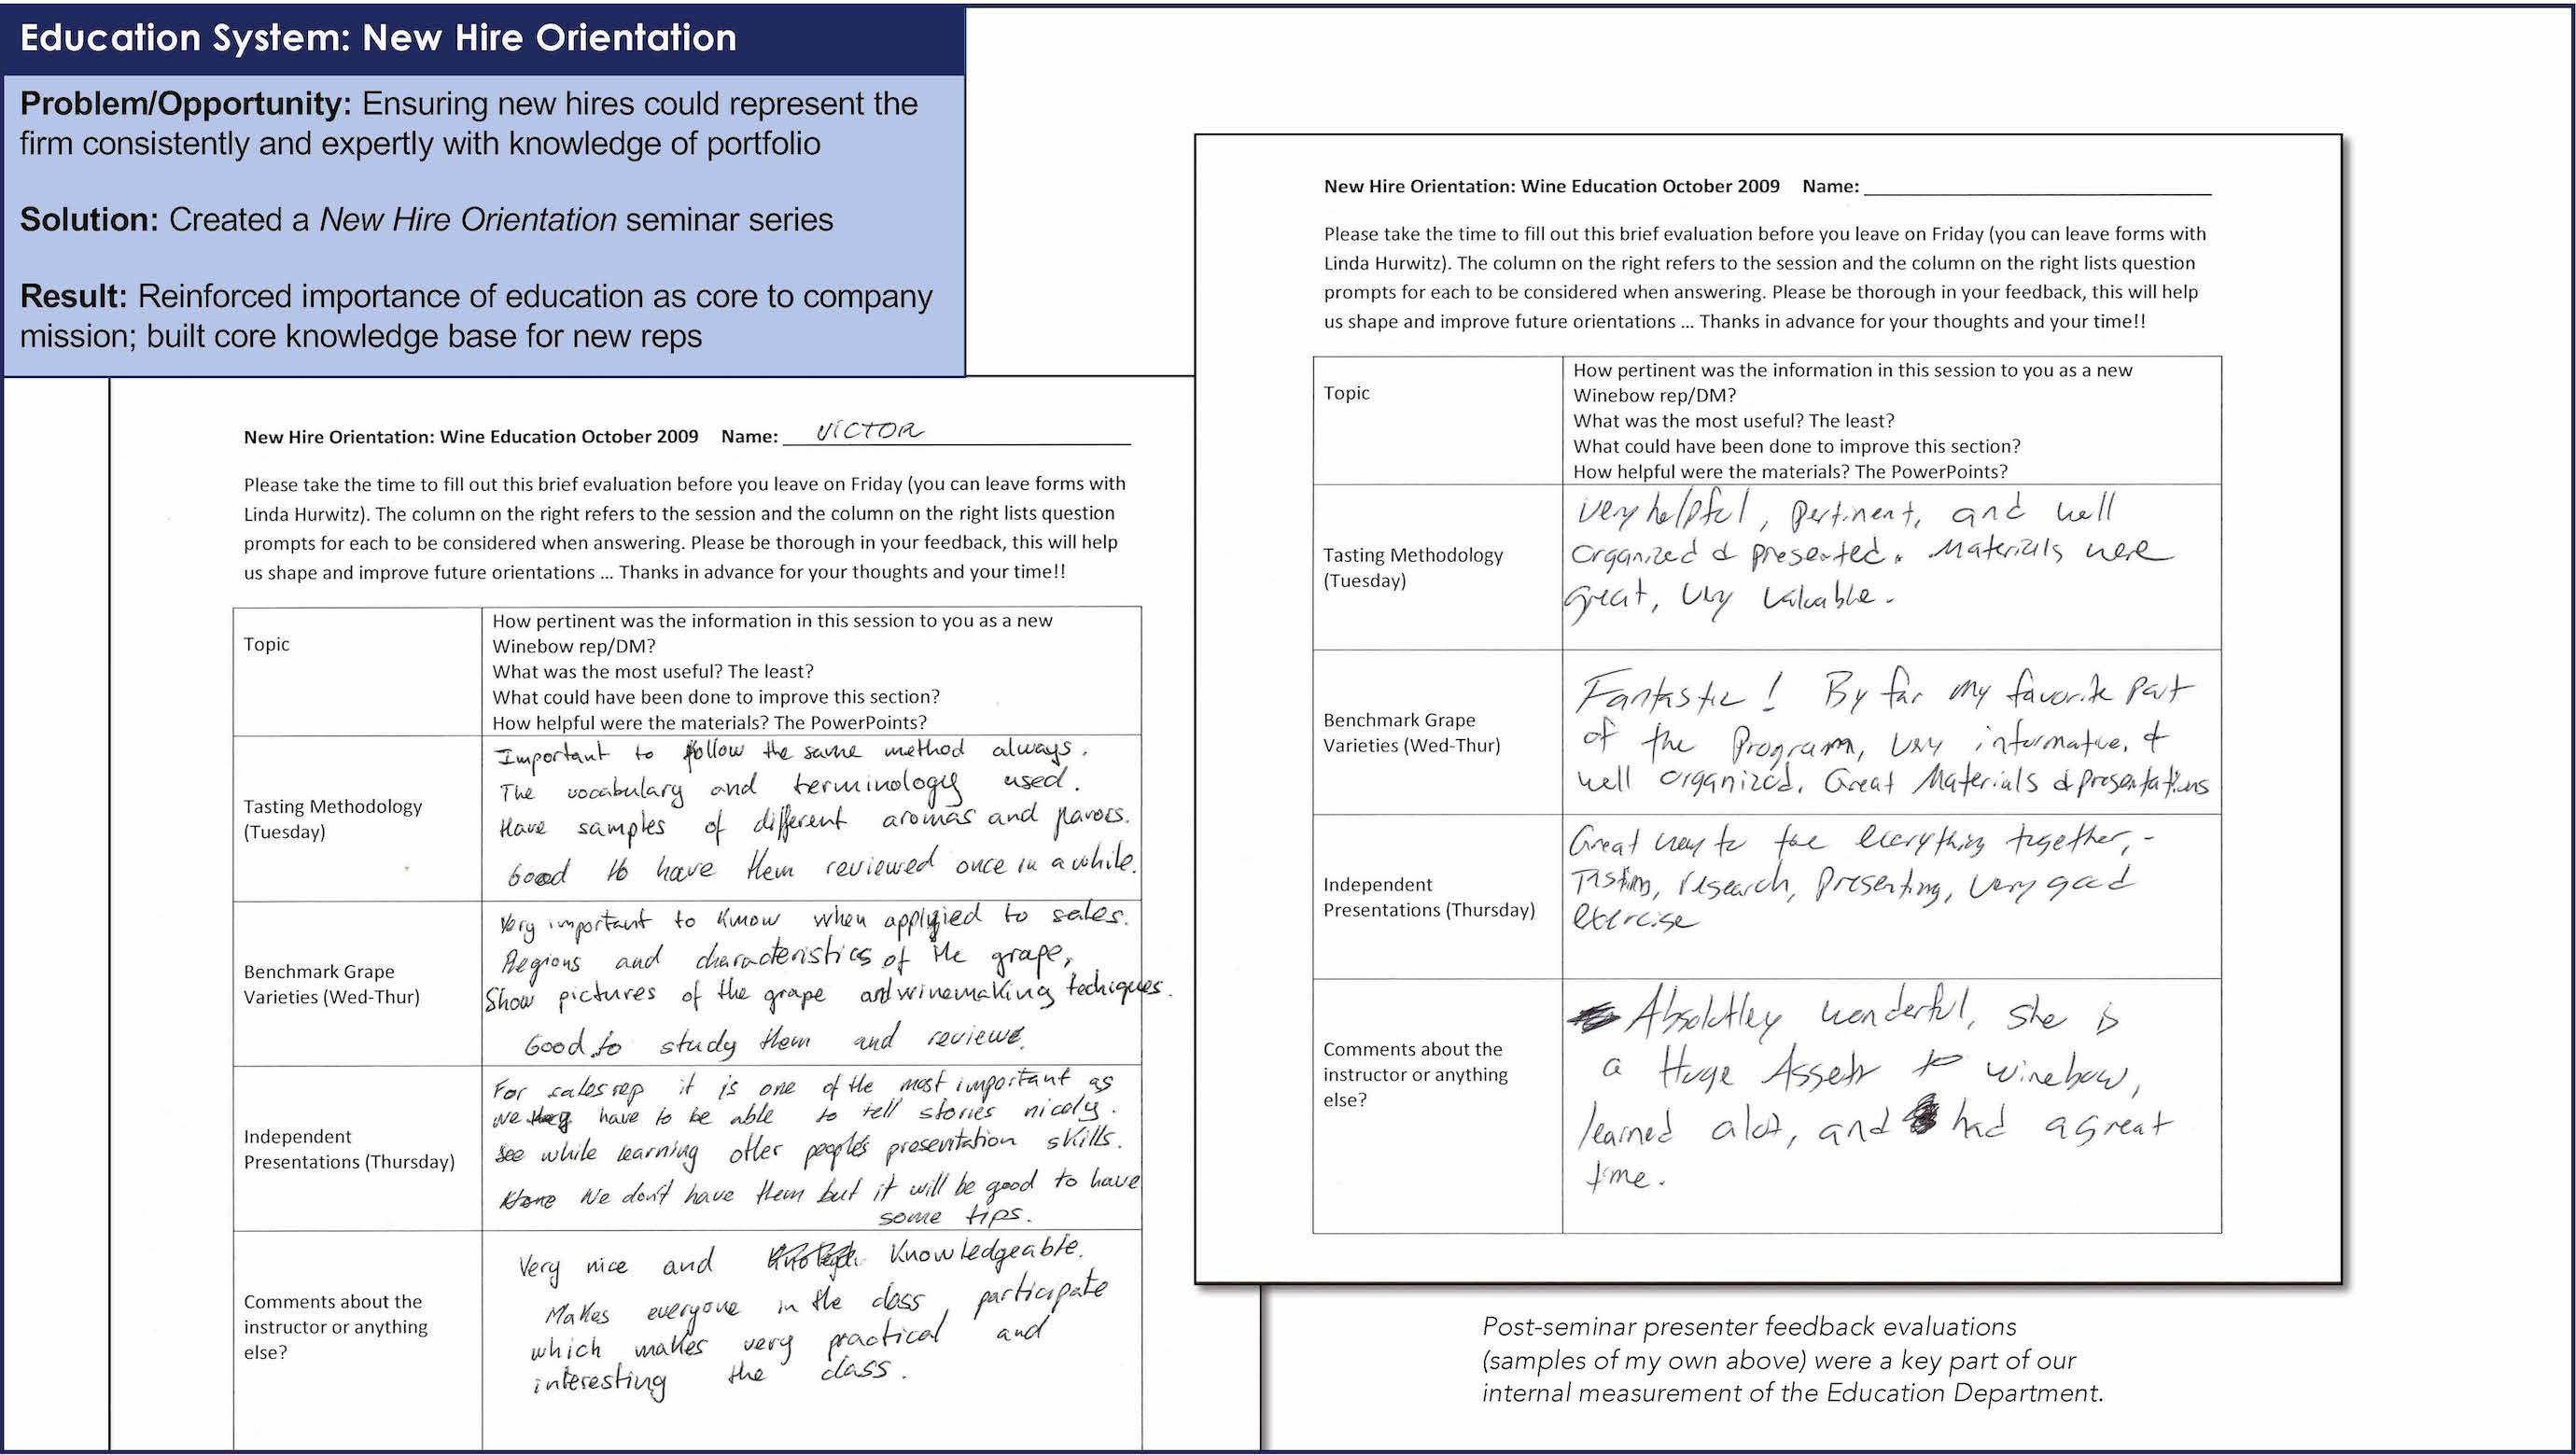 Education System: New Hire Orientation
Problem/Opportunity: Ensuring new hires could represent the
firm consistently and expertly with knowledge of portfolio
Solution: Created a New Hire Orientation seminar series
Result: Reinforced importance of education as core to company
mission; built core knowledge base for new reps
New Hire Orientation: Wine Education October 2009 Name: VICTOR
Please take the time to fill out this brief evaluation before you leave on Friday (you can leave forms with
Linda Hurwitz). The column on the right refers to the session and the column on the right lists question
prompts for each to be considered when answering. Please be thorough in your feedback, this will help
us shape and improve future orientations ... Thanks in advance for your thoughts and your time!!
Topic
How pertinent was the information in this session to you as a new
Winebow rep/DM?
What was the most useful? The least?
What could have been done to improve this section?
How helpful were the materials? The PowerPoints?
Tasting Methodology
(Tuesday)
Important to follow the same method always.
The vocabulary and terminology used.
Have samples of different aromas and flavors.
Good to have them reviewed once in a while.
Benchmark Grape
Varieties (Wed-Thur)
Very important to know when applyied to sales.
Regions and characteristics of the grape,
Show pictures of the grape and winemaking techiques.
Good to study them and reviewe.
Independent
Presentations (Thursday)
For sales rep it is one of the most important as
we they have to be able to tell stories nicely.
See while learning other people's presentation skills.
We don't have them but it will be good to have
some tips.
Comments about the
instructor or anything
else?
Very nice and Knowledgeable.
Makes everyone in the class, participate
which makes very practical and
interesting the class.
New Hire Orientation: Wine Education October 2009 Name:
Please take the time to fill out this brief evaluation before you leave on Friday (you can leave forms with
Linda Hurwitz). The column on the right refers to the session and the column on the right lists question
prompts for each to be considered when answering. Please be thorough in your feedback, this will help
us shape and improve future orientations ... Thanks in advance for your thoughts and your time!!
Topic
How pertinent was the information in this session to you as a new
Winebow rep/DM?
What was the most useful? The least?
What could have been done to improve this section?
How helpful were the materials? The PowerPoints?
Tasting Methodology
(Tuesday)
Very helpful, pertinent, and well
organized & presented. Materials were
great, very valuable.
Benchmark Grape
Varieties (Wed-Thur)
Fantastic! By far my favorite part
of the Program, very informative, &
well organized. Great Materials & presentations
Independent
Presentations (Thursday)
Great way to tie everything together, -
Tasting, research, presenting, very good
exercise
Comments about the
instructor or anything
else?
Absolutley wonderful, she is
a Huge Assett to winebow,
learned alot, and had a great
time.
Post-seminar presenter feedback evaluations
(samples of my own above) were a key part of our
internal measurement of the Education Department.